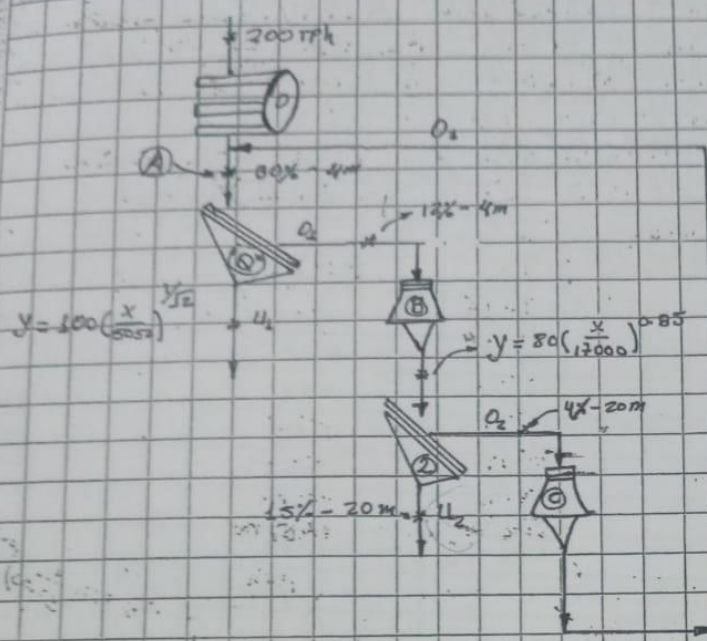 200 TPh
D
O₁
Ⓐ
60% - 4m
O₁
12% - 4m
①
y = 100(x/5052)^(1/√2)
U₁
Ⓑ
y = 80(x/17000)^0.85
O₂
4% - 20m
②
Ⓒ
15% - 20m
U₂